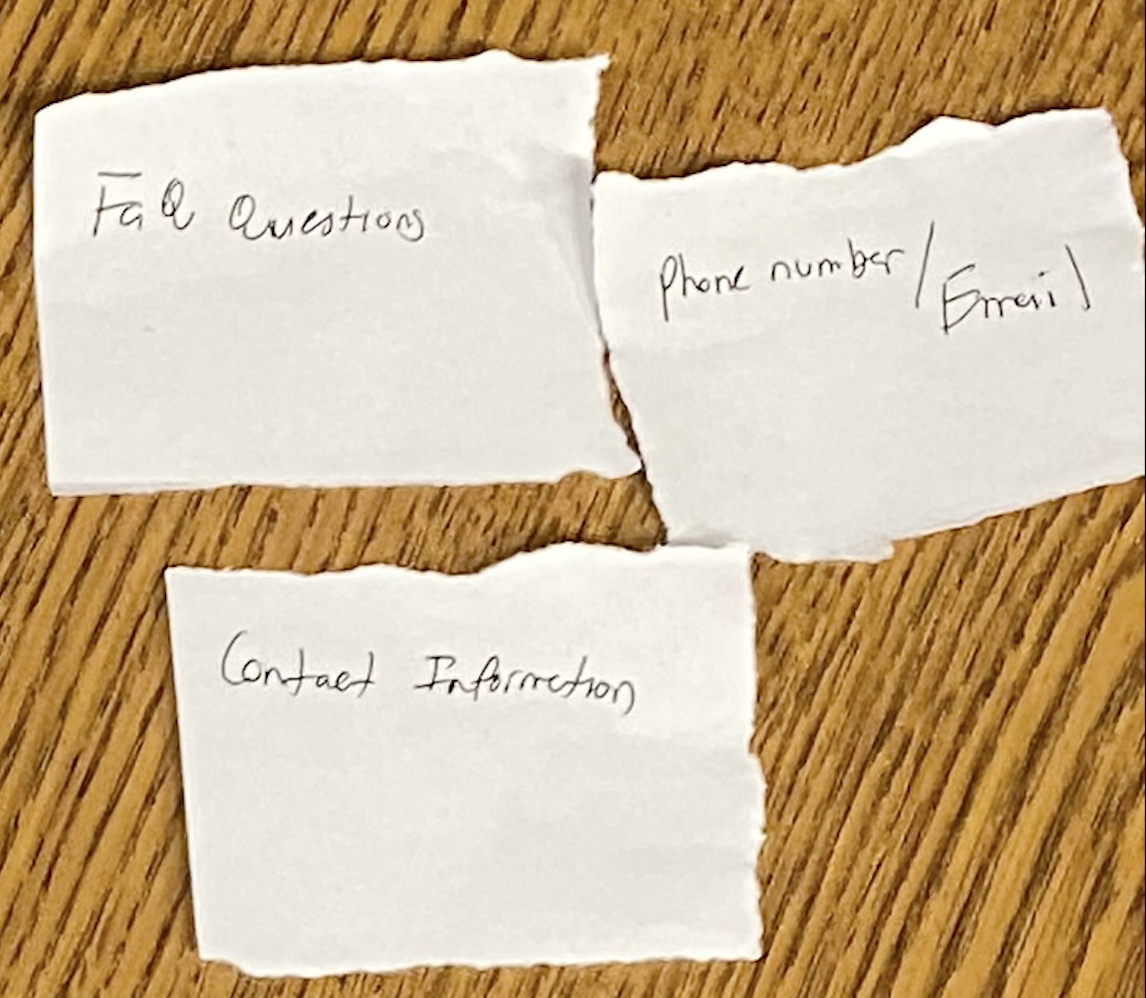 FaQ Questions
Phone number/Email
Contact Information